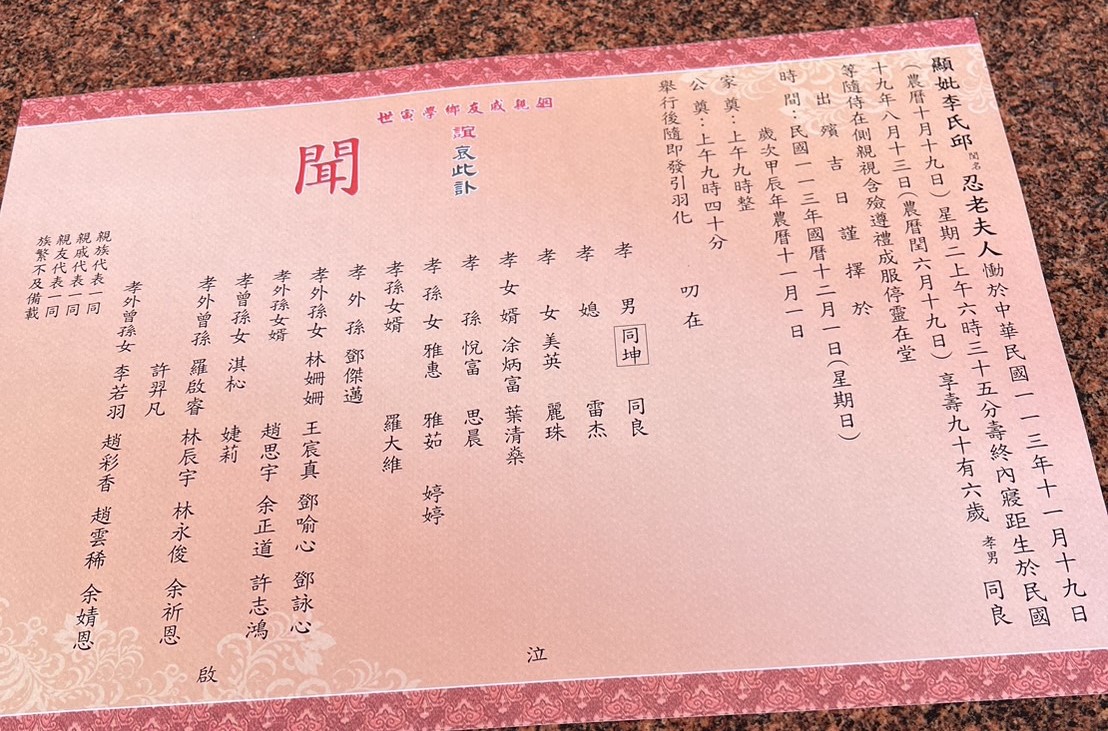 顯妣李氏邱閨名忍老夫人慟於中華民國一一三年十一月十九日
(農曆十月十九日)星期二上午六時三十五分壽終內寢距生於民國
十九年八月十三日(農曆閏六月十九日)享壽九十有六歲 孝男 同良
等隨侍在側親視含殮遵禮成服停靈在堂
出殯吉日謹擇於
時間:民國一一三年國曆十二月一日(星期日)
歲次甲辰年農曆十一月一日
家奠:上午九時整
公奠:上午九時四十分
舉行後隨即發引羽化
叨在
姻親戚友鄉學寅世
誼哀此訃
聞
孝男 同坤 同良
孝媳 雷杰
孝女 美英 麗珠
孝女婿 凃炳富 葉清燊
孝孫 悅富 思晨
孝孫女 雅惠 雅茹 婷婷
孝孫女婿 羅大維
孝外孫 鄧傑邁
孝外孫女 林姍姍 王宸真 鄧喻心 鄧詠心
孝外孫女婿 趙思宇 余正道 許志鴻
孝曾孫女 淇杺 婕莉
孝外曾孫 羅啟睿 林辰宇 林永俊 余祈恩
許羿凡
孝外曾孫女 李若羽 趙彩香 趙雲稀 余婧恩
泣
啟
親族代表一同
親戚代表一同
親友代表一同
族繁不及備載